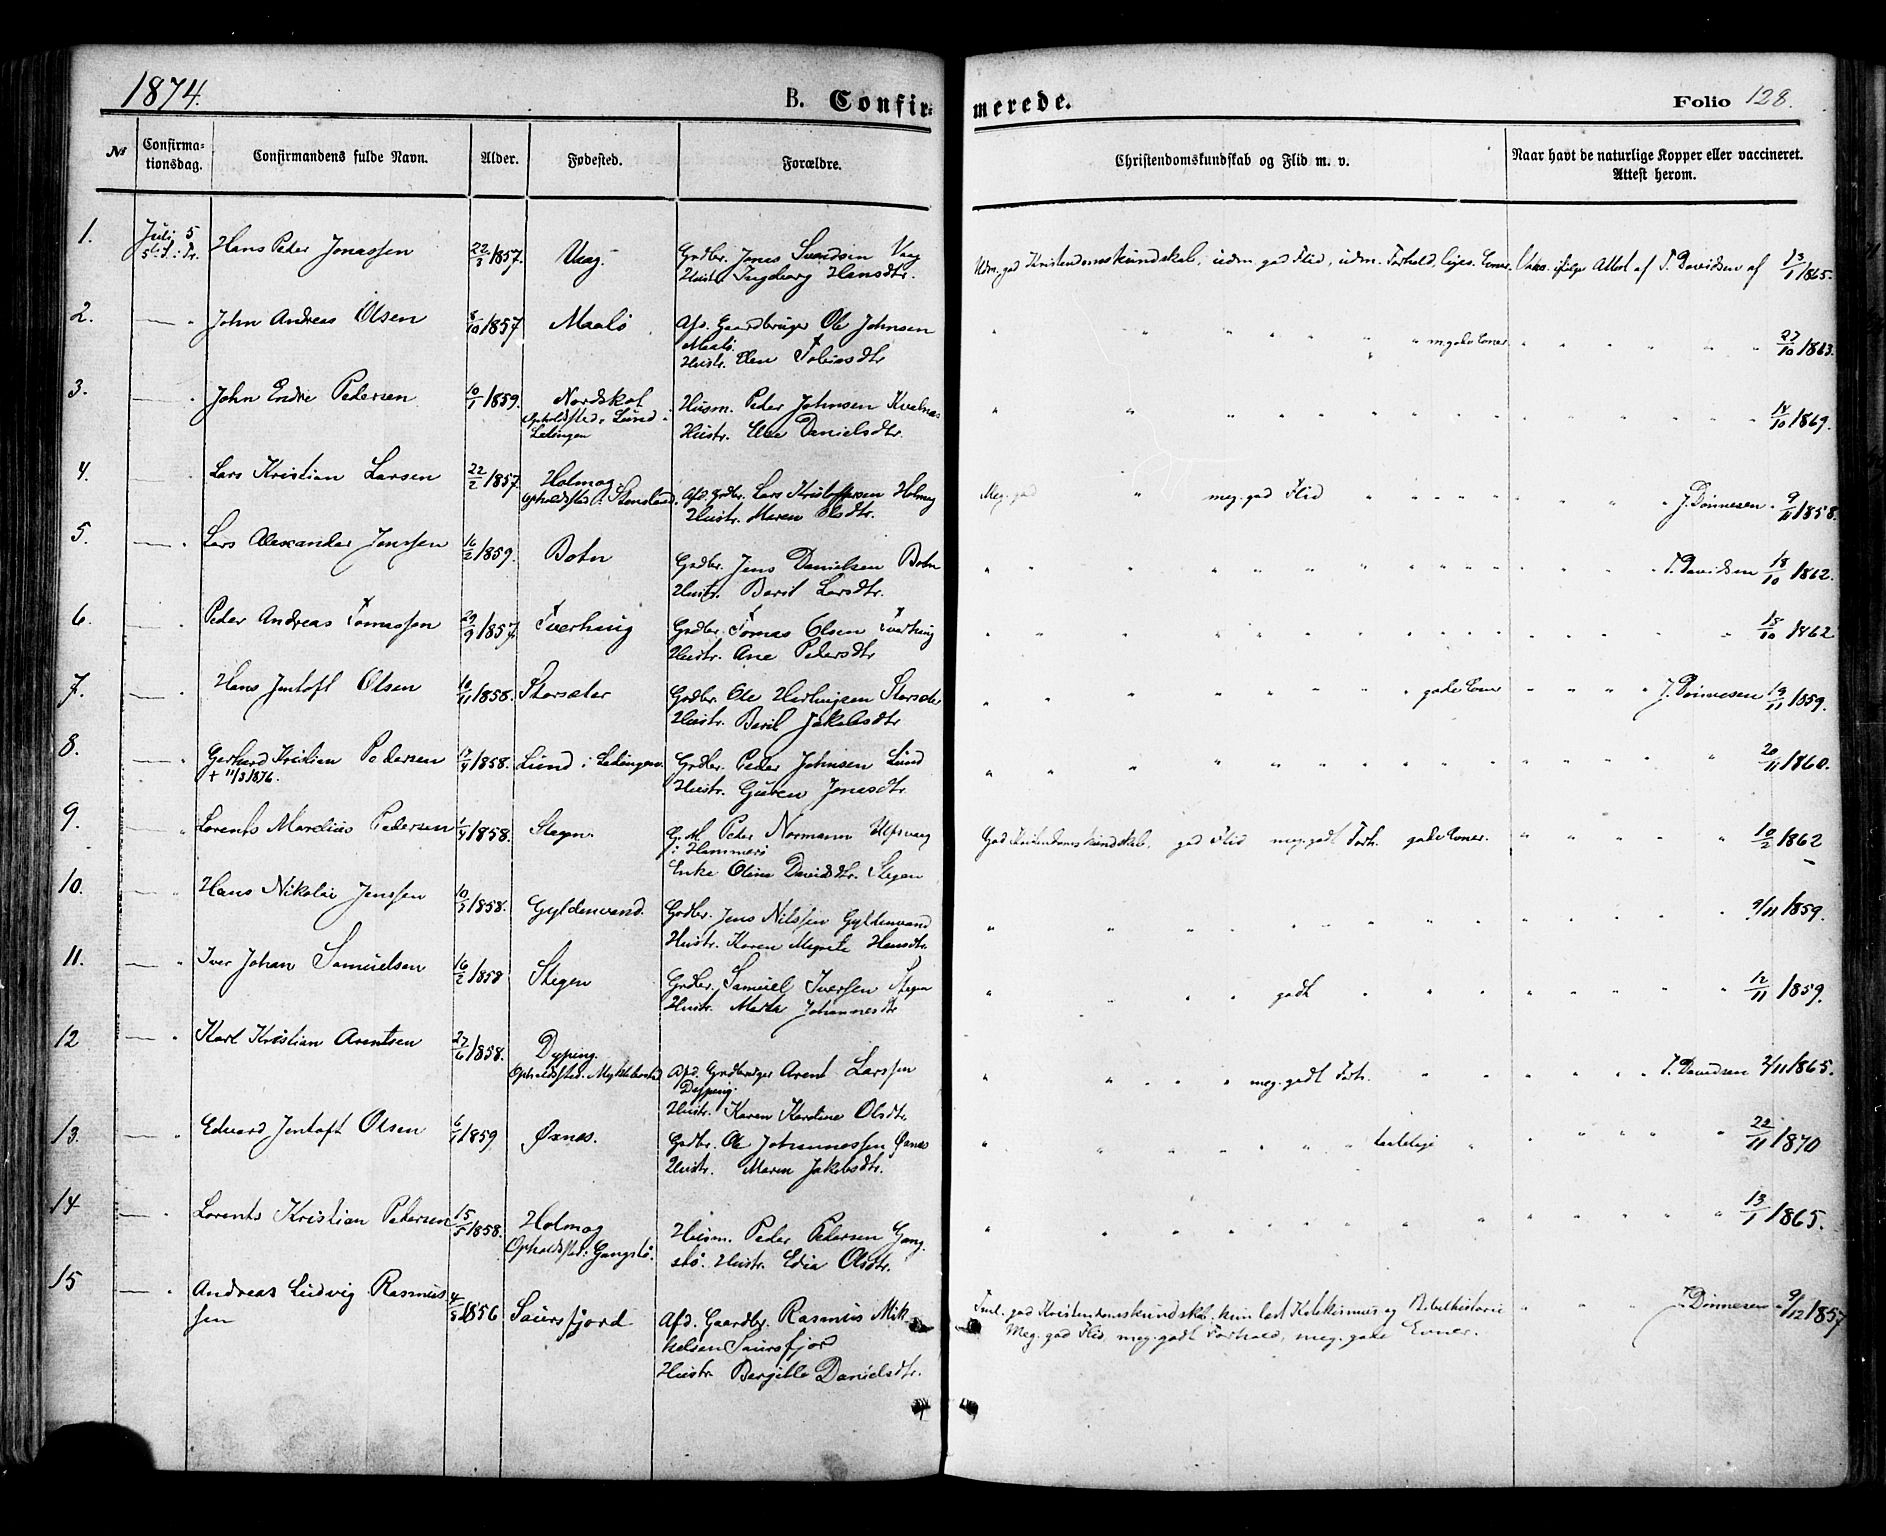 1874.
B. Confirmerede.
Folio 128.
№
Confirma-
tionsdag.
Confirmandens fulde Navn.
Alder.
Fødested.
Forældre.
Christendomskundskab og Flid m. v.
Naar havt de naturlige Kopper eller vaccineret.
Attest herom.
1. Juli 5 Hans Peder Jonassen 22/3 1857. Vaag. Grdbr. Jonas Svendsen Vaag
5te S. e. Tr. Hustr. Ingeborg Hansdtr.
Udm. god Kristendomskundskab, udm. god Flid, udm. Forhold, Vakc. ifølge Attest af T. Davidsen af 13/1 1865.
2. — " John Andreas Olsen 8/10 1857 Maalø Afd. Gaardbruger Ole Johnsen
Maalø.
Hustr. Elen Tobiasdtr
" " " " " " m. gode Evner " " " " " " 27/10 1863.
3. — " John Endre Pedersen 10/1 1859. Nordskot Husm. Peder Johnsen Kvalnes
Opholdssted: Lund i Hustr. Danielsdtr.
Lødingen
" " " " " " " " " 14/10 1869.
4. — Lars Kristian Larsen 22/2 1857. Holmag Afd. Grdbr. Lars Kristoffersen Holmag
Opholdssted: Stensland. Hustr. Maren Olsdtr.
Meg. god " meg. god Flid " " " " " " J. Dønnesen " 9/11 1858.
5. — " Lars Alexander Jenssen 16/2 1859. Botn Grdbr. Jens Danielsen Botn
Hustr. Berit Larsdtr.
" " " " " " " " " T. Davidsen 18/10 1862.
6. — " Peder Andreas Tomassen 29/9 1857. Tverhaug Grdbr. Tomas Olsen Tverhaug
Hustr. Ane Pedersdtr
" " " " " " " " " 18/10 1862
7. — " Hans Jentoft Olsen 10/11 1858. Storsæter Grdbr. Ole Storsæter
Hustr. Beril Jakobsdtr
" " " " " " gode Evner " " " " J. Dønnesen 19/11 1859.
8. — " Gerhard Kristian Pedersen 17/4 1858. Lund i Lødingen. Grdbr. Peder Johnsen Lund
+ 11/3 1876. Hustr. Guren Jonasdtr.
" " " " " " " " " 20/11 1860.
9. " Lorents Marelius Pedersen 1/4 1858. Stegen. G. M. Peder Normann Ulfsvaag
i Hammerø
Enke Oline Davidsdtr. Stegen
God Kristendomskundskab, god Flid meg. godt Forh. gode Evner. " " " " " 10/2 1862
10. — " Hans Nikolai Jenssen 10/3 1858. Gyldenvand. Grdbr. Jens Nilssen Gyldenvand
Hustr. Karen Megrete Hansdtr.
" " " " " " " " " 9/11 1859.
11. — " Iver Johan Samuelsen 16/2 1858 Stegen Grdbr. Samuel Iversen Stegen
Hustr. Marta Johannesdtr
" " " " godt " " " " " " 12/11 1859.
12 — " Karl Kristian Arentsen 27/6 1858. Dyping. Afd. Grdbruger Arent Larssen
Opholdssted: Myklebostad Dyping.
Hustr. Karen Karoline Olsdtr.
" " " " meg. godt Forh. " " " " " T. Davidsen 2/11 1865.
13. — " Edvard Jentoft Olsen 6/1 1859 Øxnes. Grdbr. Ole Johannessen Øxnes
Hustr. Maren Jakobsdtr.
" " " " " " " " " " " 22/11 1870
14 — " Lorents Kristian Pedersen 15/5 1858. Holmag Husm. Peder Pedersen Gang-
Opholdssted: Gangstø. stø. Hustr. Edia Olsdtr.
" " " " " " " " " " " 13/1 1865.
15 — " Andreas Ludvig Rasmus- 4/5 1856 Saursfjord Afd. Gaardbr. Rasmus Mik-
sen kelsen Saursfjor
Hustr. Bergitte Danielsdtr.
god Kristendomskundskab, kun læst Katekismus og Bibelhistorie " " " " J. Dønnesen " 9/12 1857
Meg. god Flid, meg. godt Forhold, meg. gode Evner.